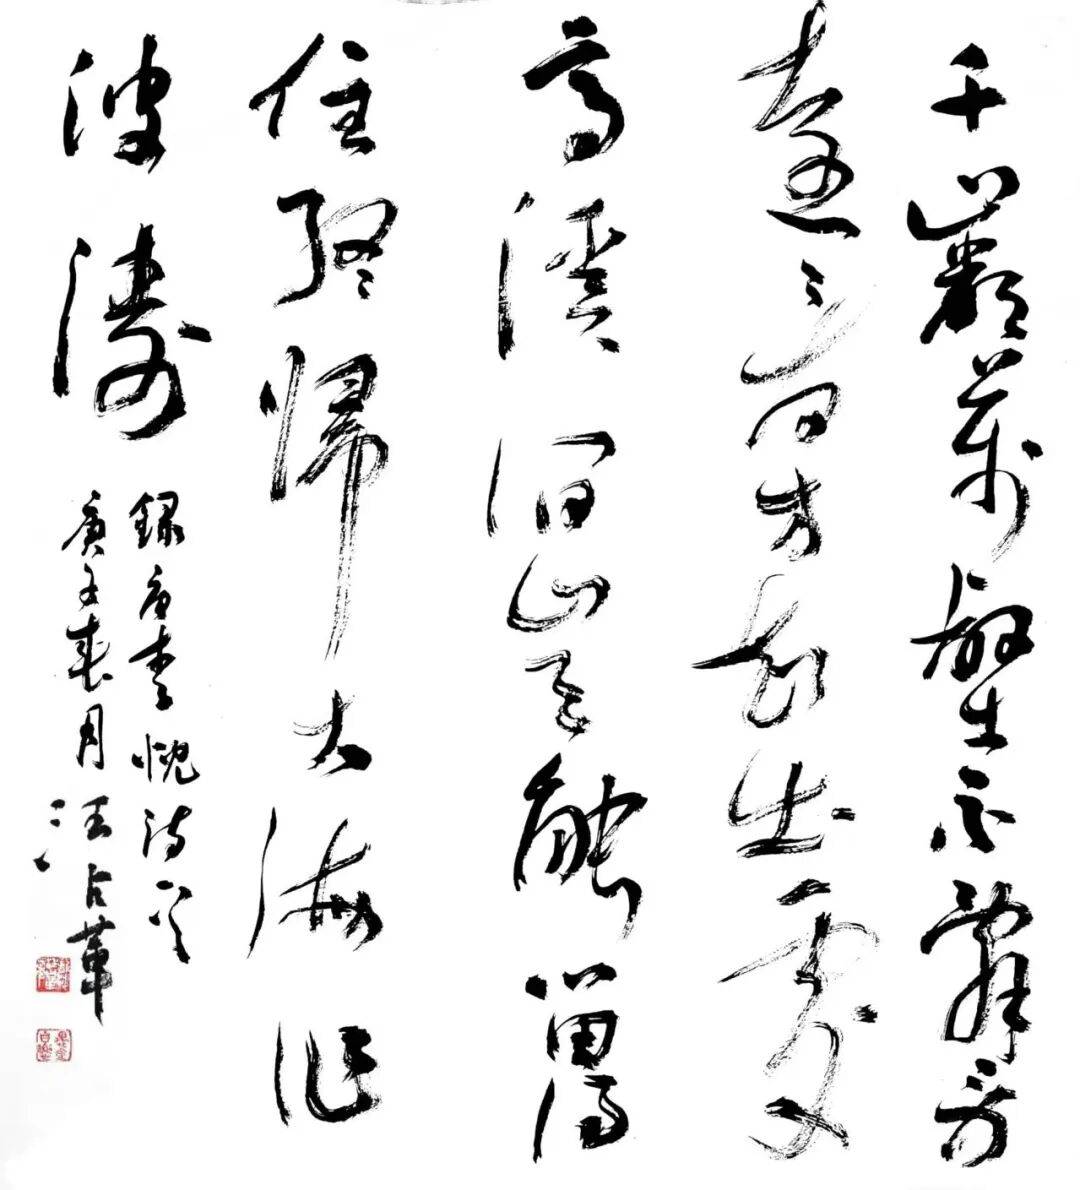 千巖萬壑不辭勞
遠看方知出處
高溪澗豈能留得
住終歸大海作
波濤
錄唐李忱詩一首
庚子春月汪占革